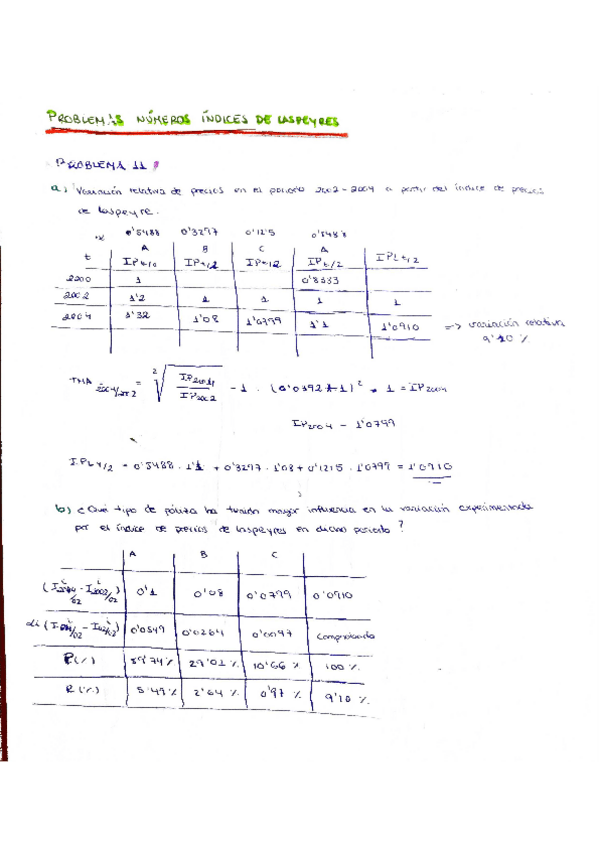 PROBLEMAS NÚMEROS ÍNDICES DE LASPEYRES
PROBLEMA 11
a) Variación relativa de precios en el periodo 2002-2004 a partir del índice de precios
de laspeyre.
0'5488 0'3297 0'1215 0'5488
A B C A
t IPt/0 IPt/2 IPt/2 IPt/2 IPLt/2
2200 1 0'8333
2002 1'2 1 1 1 1
2004 1'32 1'08 1'0799 1'1 1'0910 => variación relativa
9'10 %
TMA = 2 IP2004 / IP2002 - 1 . (0'0392 + 1)² * 1 = IP2004
IP2004 - 1'0799
IPL4/2 = 0'5488 · 1'1 + 0'3297 · 1'08 + 0'1215 · 1'0799 = 1'0910
b) ¿Qué tipo de póliza ha tenido mayor influencia en la variación experimentada
por el índice de precios de laspeyres en dicho periodo?
A B C
0'1 0'08 0'0799 0'0910
0'0549 0'0264 0'0097 comprobando
P(%) 59'74% 29'01% 10'66% 100%
R(%) 5'49% 2'64% 0'97% 9'10%